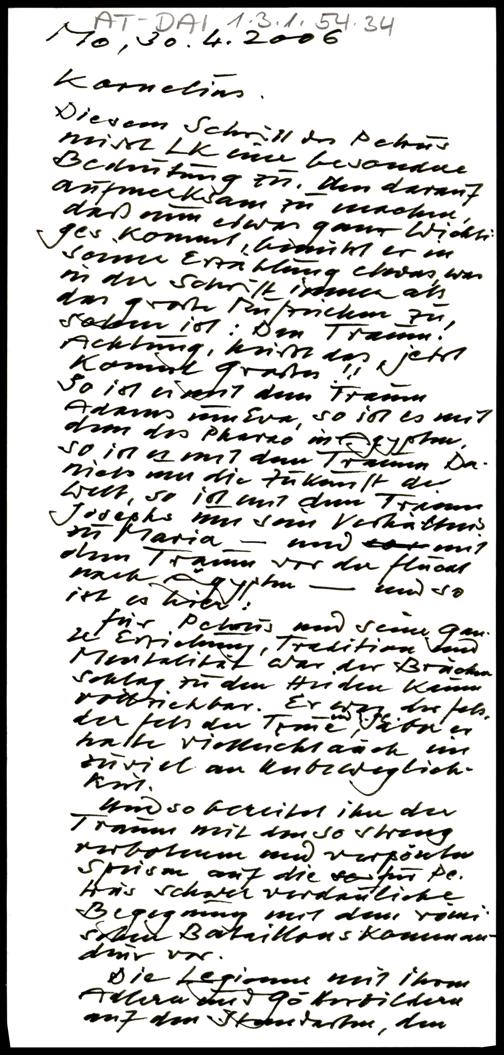 AT-DAI 1.3.1.54.34
Mo, 30.4.2006
Kornelius.
Diesem Schritt des Petrus
misst LK eine besondere
Bedeutung zu. Um darauf
aufmerksam zu machen,
daß nun etwas ganz Wichti-
ges kommt, bemüht er in
seiner Erzählung etwas, was
in der Schrift immer als
das große Rufzeichen zu
sehen ist: Den Traum.
Achtung, heißt das, jetzt
kommt Großes!!
So ist es mit dem Traum
Adams um Eva, so ist es mit
dem des Pharao in Ägypten,
so ist es mit dem Traum Da-
niels um die Zukunft der
Welt, so ist mit dem Traum
Josephs um sein Verhältnis
zu Maria — und mit
dem Traum vor der Flucht
nach Ägypten — und so
ist es hier:
Für Petrus und seine gan-
ze Erziehung, Tradition und
Mentalität war der Brücken
schlag zu den Heiden kaum
vollziehbar. Er war der Fels,
der Fels der Treue, aber er
hatte vielleicht auch ein
zuviel an Unbeweglich-
keit.
Und so bereitet ihn der
Traum mit den so streng
verbotenen und verpönten
Speisen auf die für Pe-
trus schwer verdauliche
Begegnung mit dem römi
schen Bataillonskomman
deur vor.
Die Legionen mit ihren
Adlern und Götterbildern
auf den Standarten, den